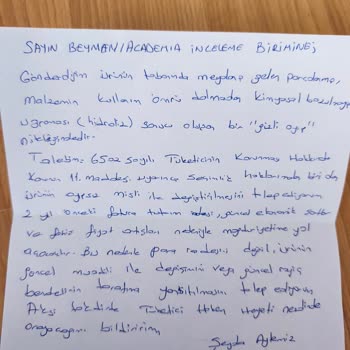 SAYIN BEYMAN/ACADEMIA İNCELEME BİRİMİNE;
Gönderdiğim ürünün tabanında meydana gelen parçalanma,
malzemenin kullanım ömrü dolmadan kimyasal bozulmaya
uğraması (hidroliz) sonucu oluşan bir "gizli ayıp"
niteliğindedir.
Talebim: 6502 sayılı Tüketicinin Korunması Hakkında
Kanun 11. maddesi uyarınca seçimlik haklarımdan biri olan
ürünün ayıpsız misli ile değiştirilmesini talep ediyorum
2 yıl önceki fatura tutarın iadesi, güncel ekonomik şartlar
ve fahiş fiyat artışları nedeniyle mağduriyetime yol
açacaktır. Bu nedenle para iadesini değil, ürünün
güncel muadili ile değişimini veya güncel rayiç
bedelinin tarafıma yansıtılmasını talep ediyorum
Aksi takdirde Tüketici Hakem Heyeti nezdinde
arayacağımı bildiririm
Şeyda